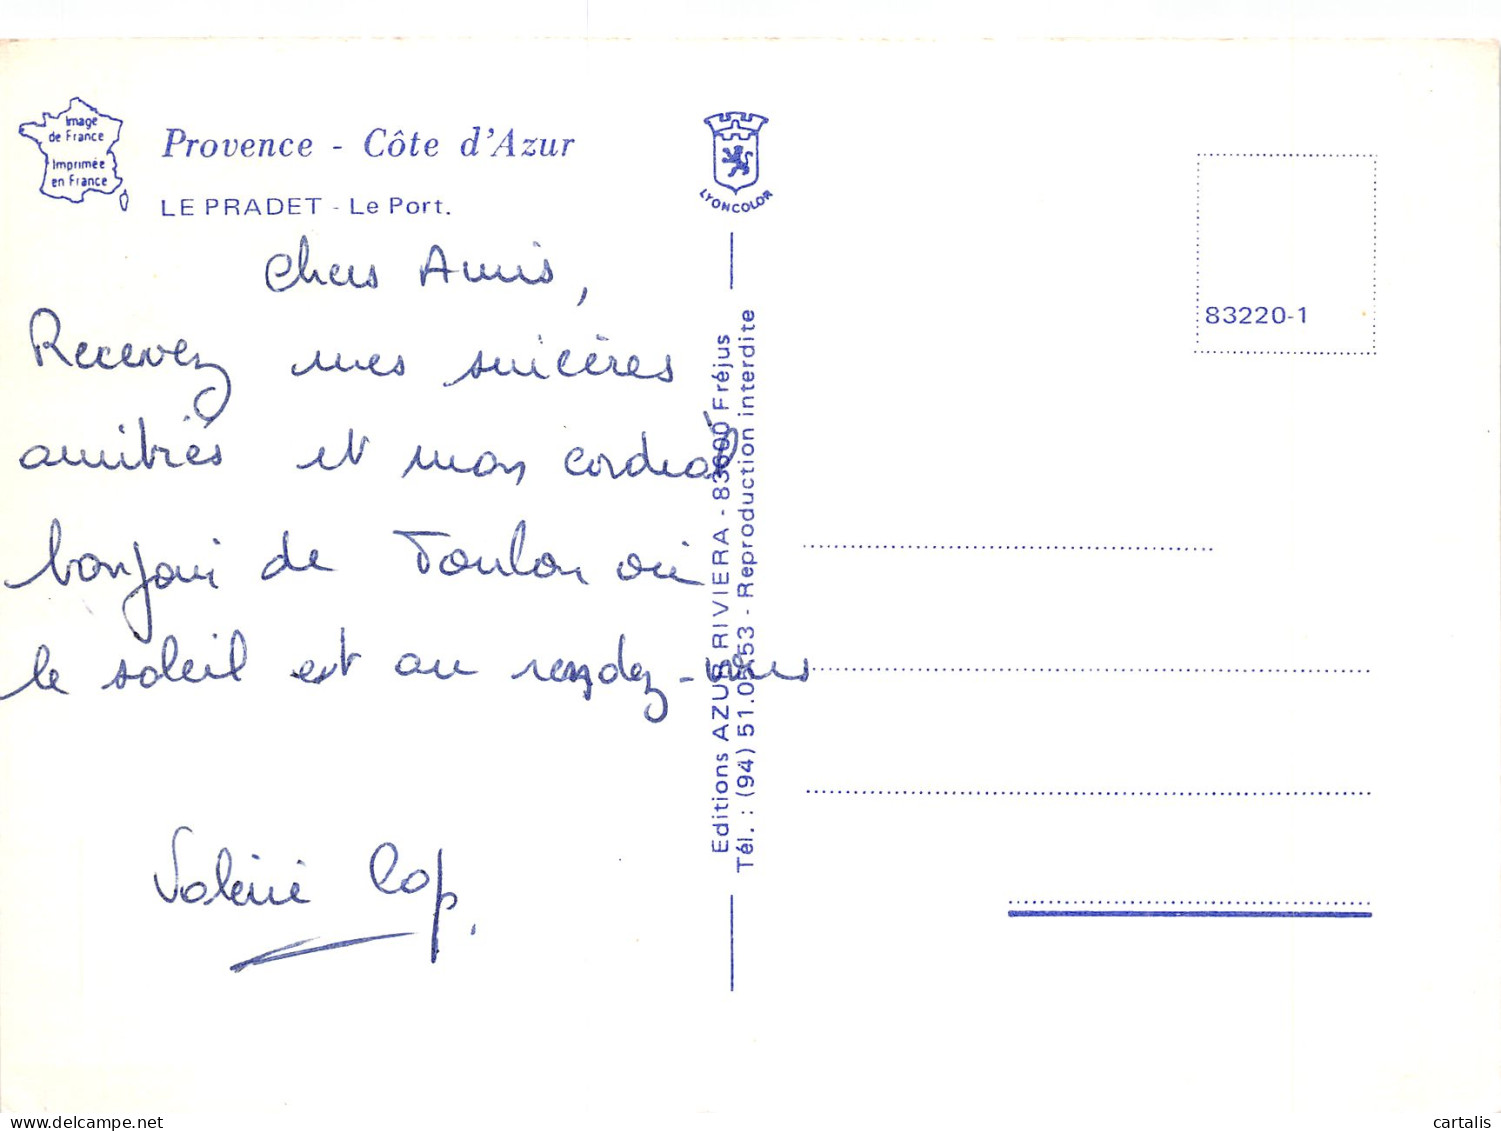 Image
de France
Imprimée
en France
Provence - Côte d'Azur
LE PRADET - Le Port.
Chers Amis,
Recevez mes sincères
amitiés et mon cordial
bonjour de Toulon où
le soleil est au rendez-vous
Valérie Cop.
LYONCOLOR
Editions AZUR RIVIERA - 83600 Fréjus
Tél. : (94) 51.05.53 - Reproduction interdite
83220-1
www.delcampe.net
cartalis